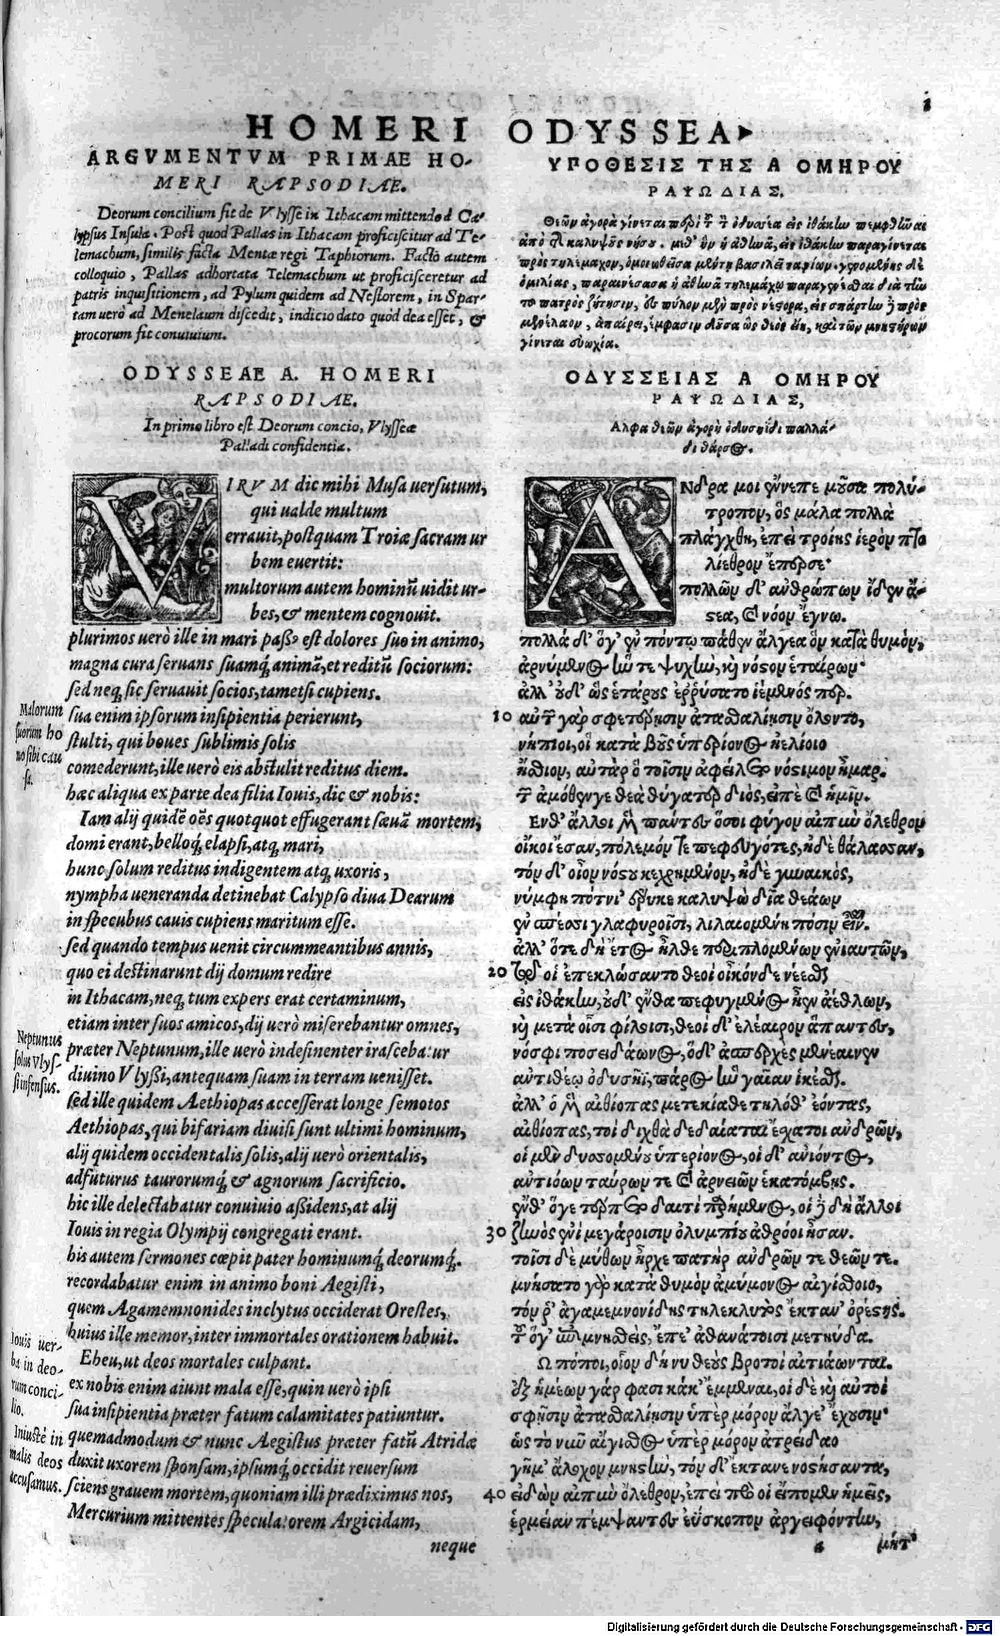 1
HOMERI ODYSSEA
ARGVMENTVM PRIMAE HO-
MERI RAPSODIAE.
Deorum concilium fit de Vlysse in Ithacam mittendo à Ca-
lypsus Insula. Post quod Pallas in Ithacam proficiscitur ad Te-
lemachum, similis facta Mentæ regi Taphiorum. Facto autem
colloquio, Pallas adhortata Telemachum ut proficisceretur ad
patris inquisitionem, ad Pylum quidem ad Nestorem, in Spar-
tam uerò ad Menelaum discedit, indicio dato quòd dea esset, &
procorum fit conuiuium.
ODYSSEAE A. HOMERI
RAPSODIAE.
In primo libro est Deorum concio, Vlysseæ
Palladi confidentia.
VIRVM dic mihi Musa uersutum,
qui ualde multum
errauit, postquam Troiæ sacram ur
bem euertit:
multorum autem hominũ uidit ur-
bes, & mentem cognouit.
plurimos uerò ille in mari passus est dolores suo in animo,
magna cura seruans suamq́; animã, et reditũ sociorum:
sed neq; sic seruauit socios, tametsi cupiens.
Malorum
suorum ho
mo sibi cau
sa.
sua enim ipsorum insipientia perierunt,
stulti, qui boues sublimis solis
comederunt, ille uerò eis abstulit reditus diem.
hæc aliqua ex parte dea filia Iouis, dic & nobis:
Iam alij quidẽ oẽs quotquot effugerant sæuã mortem,
domi erant, belloq́; elapsi, atq; mari,
hunc solum reditus indigentem atq; uxoris,
nympha ueneranda detinebat Calypso diua Dearum
in specubus cauis cupiens maritum esse.
sed quando tempus uenit circummeantibus annis,
quo ei destinarunt dij domum redire
in Ithacam, neq; tum expers erat certaminum,
etiam inter suos amicos, dij uerò miserebantur omnes,
Neptunus
solus Vlys-
si infensus.
præter Neptunum, ille uerò indesinenter irascebatur
diuino Vlyssi, antequam suam in terram uenisset.
sed ille quidem Aethiopas accesserat longe semotos
Aethiopas, qui bifariam diuisi sunt ultimi hominum,
alij quidem occidentalis solis, alij uerò orientalis,
adfuturus taurorumq́; & agnorum sacrificio.
hic ille delectabatur conuiuio assidens, at alij
Iouis in regia Olympij congregati erant.
his autem sermones cœpit pater hominumq́; deorumq́;.
recordabatur enim in animo boni Aegisti,
quem Agamemnonides inclytus occiderat Orestes,
huius ille memor, inter immortales orationem habuit.
Iouis uer-
ba in deo-
rum conci-
lio.
Eheu, ut deos mortales culpant.
ex nobis enim aiunt mala esse, quin uerò ipsi
sua insipientia præter fatum calamitates patiuntur.
Iniustè in
malis deos
accusamus.
quemadmodum & nunc Aegistus præter fatũ Atridæ
duxit uxorem sponsam, ipsumq́; occidit reuersum
sciens grauem mortem, quoniam illi prædiximus nos,
Mercurium mittentes speculatorem Argicidam,
neque
ΥΠΟΘΕΣΙΣ ΤΗΣ Α ΟΜΗΡΟΥ
ΡΑΨΩΔΙΑΣ.
Θεῶν ἀγορὰ γίνεται περὶ τοῦ τὸν ὀδυσσέα εἰς ἰθάκην πεμφθῆναι
ἀπὸ τῆς καλυψοῦς νήσου. μεθ' ἣν ἡ ἀθηνᾶ, εἰς ἰθάκην παραγίνεται
πρὸς τηλέμαχον, ὁμοιωθεῖσα μέντῃ βασιλεῖ ταφίων. γενομένης δὲ
ὁμιλίας, παραινέσασα ἡ ἀθηνᾶ τηλεμάχῳ παραγενέσθαι διὰ τὴν
τοῦ πατρὸς ζήτησιν, εἰς πύλον μὲν πρὸς νέστορα, εἰς σπάρτην δὲ πρὸς
μενέλαον, ἀπαίρει, ἔμφασιν δοῦσα ὡς θεὸς εἴη, καὶ τῶν μνηστήρων
γίνεται εὐωχία.
ΟΔΥΣΣΕΙΑΣ Α ΟΜΗΡΟΥ
ΡΑΨΩΔΙΑΣ,
Αλφα θεῶν ἀγορὴ ὀδυσσηΐδι παλλά-
δι θάρσος.
ΑΝδρα μοι ἔννεπε μοῦσα πολύ-
τροπον, ὃς μάλα πολλὰ
πλάγχθη, ἐπεὶ τροίης ἱερὸν πτο
λίεθρον ἔπερσε·
πολλῶν δ' ἀνθρώπων ἴδεν ἄ-
στεα, καὶ νόον ἔγνω.
πολλὰ δ' ὅγ' ἐν πόντῳ πάθεν ἄλγεα ὃν κατὰ θυμόν,
ἀρνύμενος ἥν τε ψυχὴν, καὶ νόστον ἑταίρων·
ἀλλ' οὐδ' ὣς ἑτάρους ἐρρύσατο ἱέμενός περ.
10 αὐτῶν γὰρ σφετέρῃσιν ἀτασθαλίῃσιν ὄλοντο,
νήπιοι, οἳ κατὰ βοῦς ὑπερίονος ἠελίοιο
ἤσθιον, αὐτὰρ ὁ τοῖσιν ἀφείλετο νόστιμον ἦμαρ.
τῶν ἁμόθενγε θεὰ θύγατερ διὸς, εἰπὲ καὶ ἡμῖν.
Ενθ' ἄλλοι μὲν πάντες ὅσοι φύγον αἰπὺν ὄλεθρον
οἴκοι ἔσαν, πόλεμόν τε πεφευγότες, ἠδὲ θάλασσαν,
τὸν δ' οἶον νόστου κεχρημένον, ἠδὲ γυναικός,
νύμφη πότνι' ἔρυκε καλυψὼ δῖα θεάων
ἐν σπέσσι γλαφυροῖσι, λιλαιομένη πόσιν εἶναι.
ἀλλ' ὅτε δὴ ἔτος ἦλθε περιπλομένων ἐνιαυτῶν,
20 τῷ οἱ ἐπεκλώσαντο θεοὶ οἶκόνδε νέεσθαι
εἰς ἰθάκην, οὐδ' ἔνθα πεφυγμένος ἦεν ἀέθλων,
καὶ μετὰ οἷσι φίλοισι, θεοὶ δ' ἐλέαιρον ἅπαντες,
νόσφι ποσειδάωνος, ὁ δ' ἀσπερχὲς μενέαινεν
ἀντιθέῳ ὀδυσῆϊ, πάρος ἣν γαῖαν ἱκέσθαι.
ἀλλ' ὁ μὲν αἰθίοπας μετεκίαθε τηλόθ' ἐόντας,
αἰθίοπας, τοὶ διχθὰ δεδαίαται ἔσχατοι ἀνδρῶν,
οἱ μὲν δυσομένου ὑπερίονος, οἱ δ' ἀνιόντος,
ἀντιόων ταύρων τε καὶ ἀρνειῶν ἑκατόμβης.
ἔνθ' ὅγε τέρπετο δαιτὶ παρήμενος, οἱ δὲ δὴ ἄλλοι
30 ζηνὸς ἐνὶ μεγάροισιν ὀλυμπίου ἀθρόοι ἦσαν.
τοῖσι δὲ μύθων ἦρχε πατὴρ ἀνδρῶν τε θεῶν τε.
μνήσατο γὰρ κατὰ θυμὸν ἀμύμονος αἰγίσθοιο,
τόν ῥ' ἀγαμεμνονίδης τηλεκλυτὸς ἔκταν' ὀρέστης.
τοῦ ὅγ' ἐπιμνησθεὶς, ἔπε' ἀθανάτοισι μετηύδα.
Ω πόποι, οἷον δή νυ θεοὺς βροτοὶ αἰτιάωνται.
ἐξ ἡμέων γάρ φασι κάκ' ἔμμεναι, οἱ δὲ καὶ αὐτοὶ
σφῇσιν ἀτασθαλίῃσιν ὑπὲρ μόρον ἄλγε' ἔχουσιν·
ὡς τὸ νῦν αἴγισθος ὑπὲρ μόρον ἀτρείδαο
γῆμ' ἄλοχον μνηστὴν, τὸν δ' ἔκτανε νοστήσαντα,
40 εἰδὼς αἰπὺν ὄλεθρον, ἐπεὶ πρό οἱ εἴπομεν ἡμεῖς,
ἑρμείαν πέμψαντες ἐΰσκοπον ἀργειφόντην,
a
μήτ'
Digitalisierung gefördert durch die Deutsche Forschungsgemeinschaft - DFG